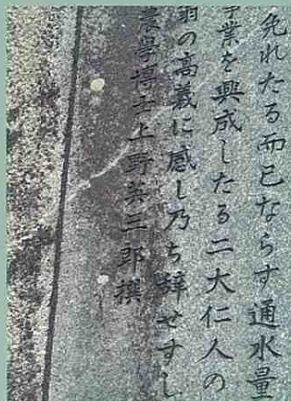 免れたる而已ならす通水量
事業を興成したる二大仁人の
翁の高義に感し乃ち辞せすし
農學博士上野英三郎撰